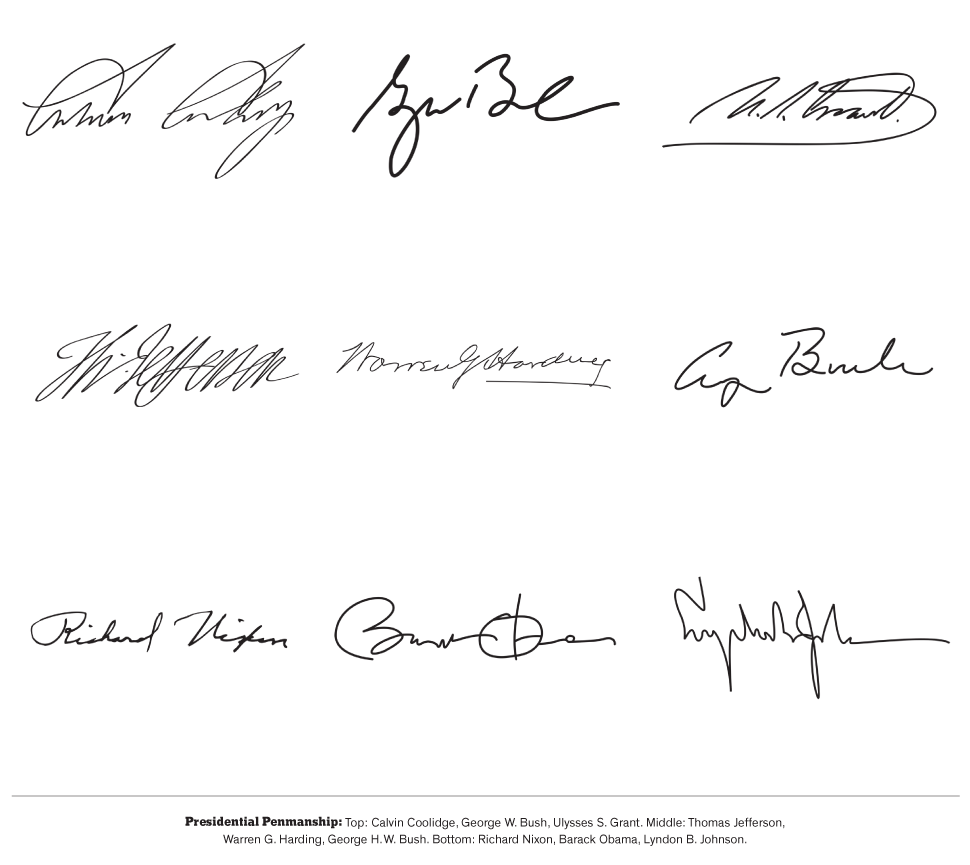 U. S. Grant.
Th: Jefferson
Warren G Harding
Richard Nixon
Presidential Penmanship: Top: Calvin Coolidge, George W. Bush, Ulysses S. Grant. Middle: Thomas Jefferson,
Warren G. Harding, George H. W. Bush. Bottom: Richard Nixon, Barack Obama, Lyndon B. Johnson.